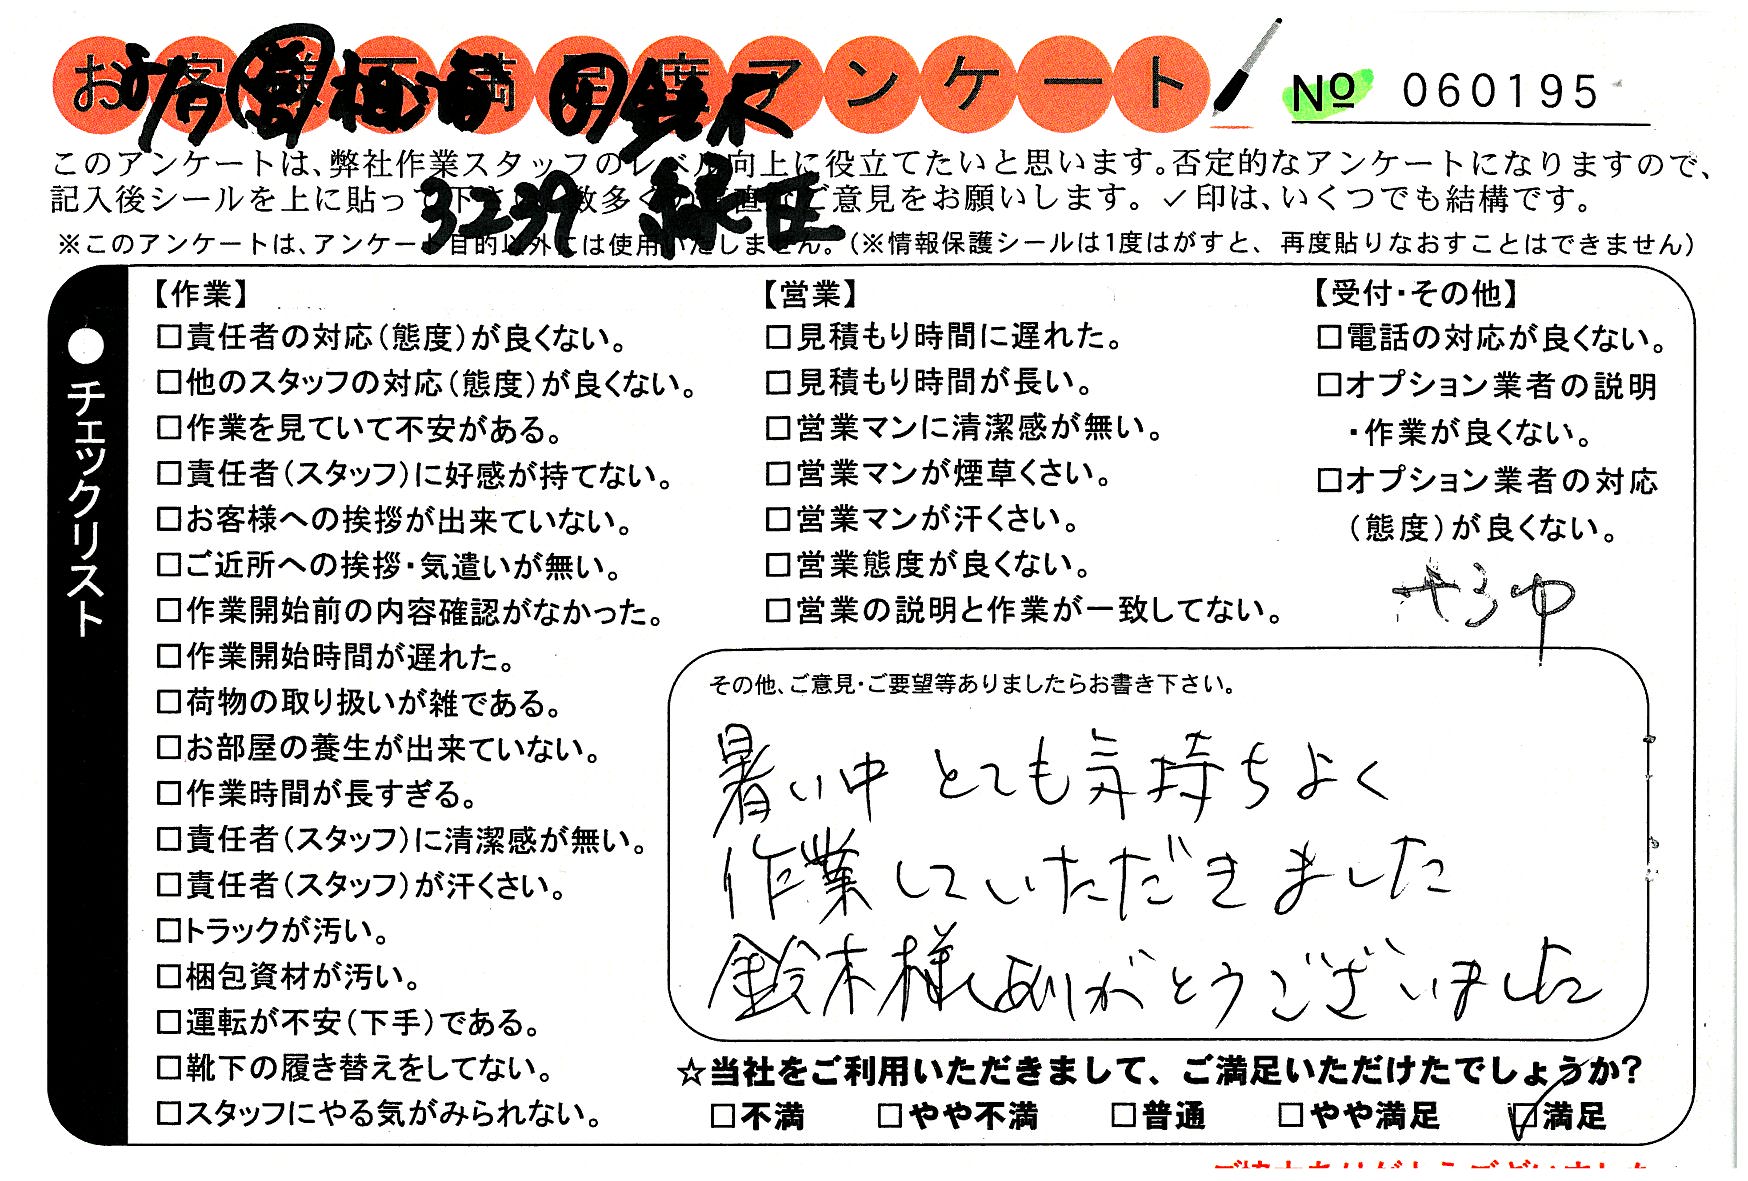 お客様不満足度アンケート
No 060195
このアンケートは、弊社作業スタッフのレベル向上に役立てたいと思います。否定的なアンケートになりますので、
記入後シールを上に貼って下さい。数多くの 直なご意見をお願いします。✓印は、いくつでも結構です。
3239 緑区
※このアンケートは、アンケート目的以外には使用いたしません。(※情報保護シールは1度はがすと、再度貼りなおすことはできません)
●チェックリスト
【作業】
□責任者の対応(態度)が良くない。
□他のスタッフの対応(態度)が良くない。
□作業を見ていて不安がある。
□責任者(スタッフ)に好感が持てない。
□お客様への挨拶が出来ていない。
□ご近所への挨拶・気遣いが無い。
□作業開始前の内容確認がなかった。
□作業開始時間が遅れた。
□荷物の取り扱いが雑である。
□お部屋の養生が出来ていない。
□作業時間が長すぎる。
□責任者(スタッフ)に清潔感が無い。
□責任者(スタッフ)が汗くさい。
□トラックが汚い。
□梱包資材が汚い。
□運転が不安(下手)である。
□靴下の履き替えをしてない。
□スタッフにやる気がみられない。
【営業】
□見積もり時間に遅れた。
□見積もり時間が長い。
□営業マンに清潔感が無い。
□営業マンが煙草くさい。
□営業マンが汗くさい。
□営業態度が良くない。
□営業の説明と作業が一致してない。
【受付・その他】
□電話の対応が良くない。
□オプション業者の説明
・作業が良くない。
□オプション業者の対応
(態度)が良くない。
その他、ご意見・ご要望等ありましたらお書き下さい。
暑い中 とても気持ちよく
作業していただきました
鈴木様ありがとうございました
☆当社をご利用いただきまして、ご満足いただけたでしょうか?
□不満 □やや不満 □普通 □やや満足 ☑満足